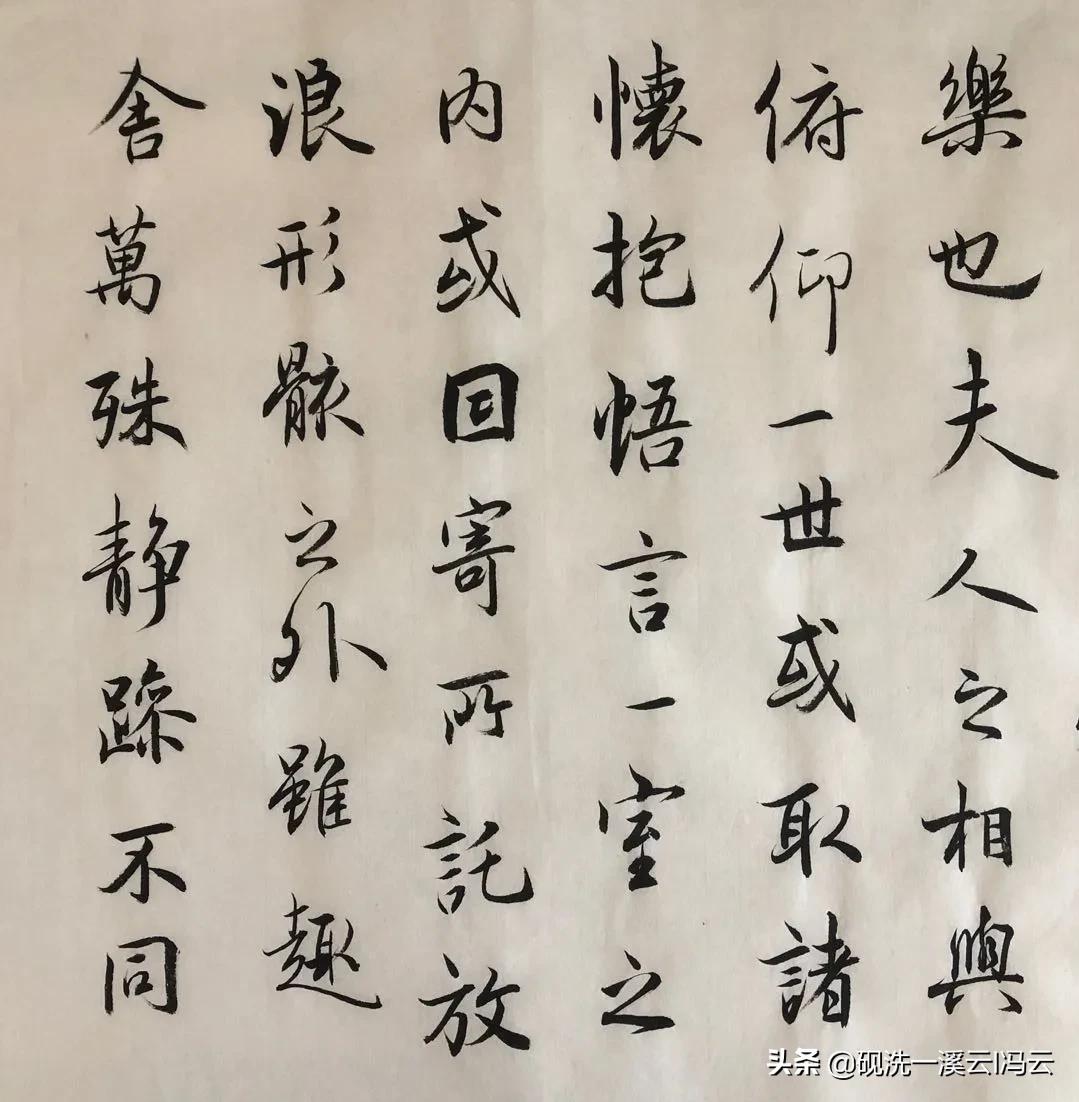 樂也夫人之相與
俯仰一世或取諸
懷抱悟言一室之
內或回寄所託放
浪形骸之外雖趣
舍萬殊静躁不同
头条 @砚洗一溪云l冯云